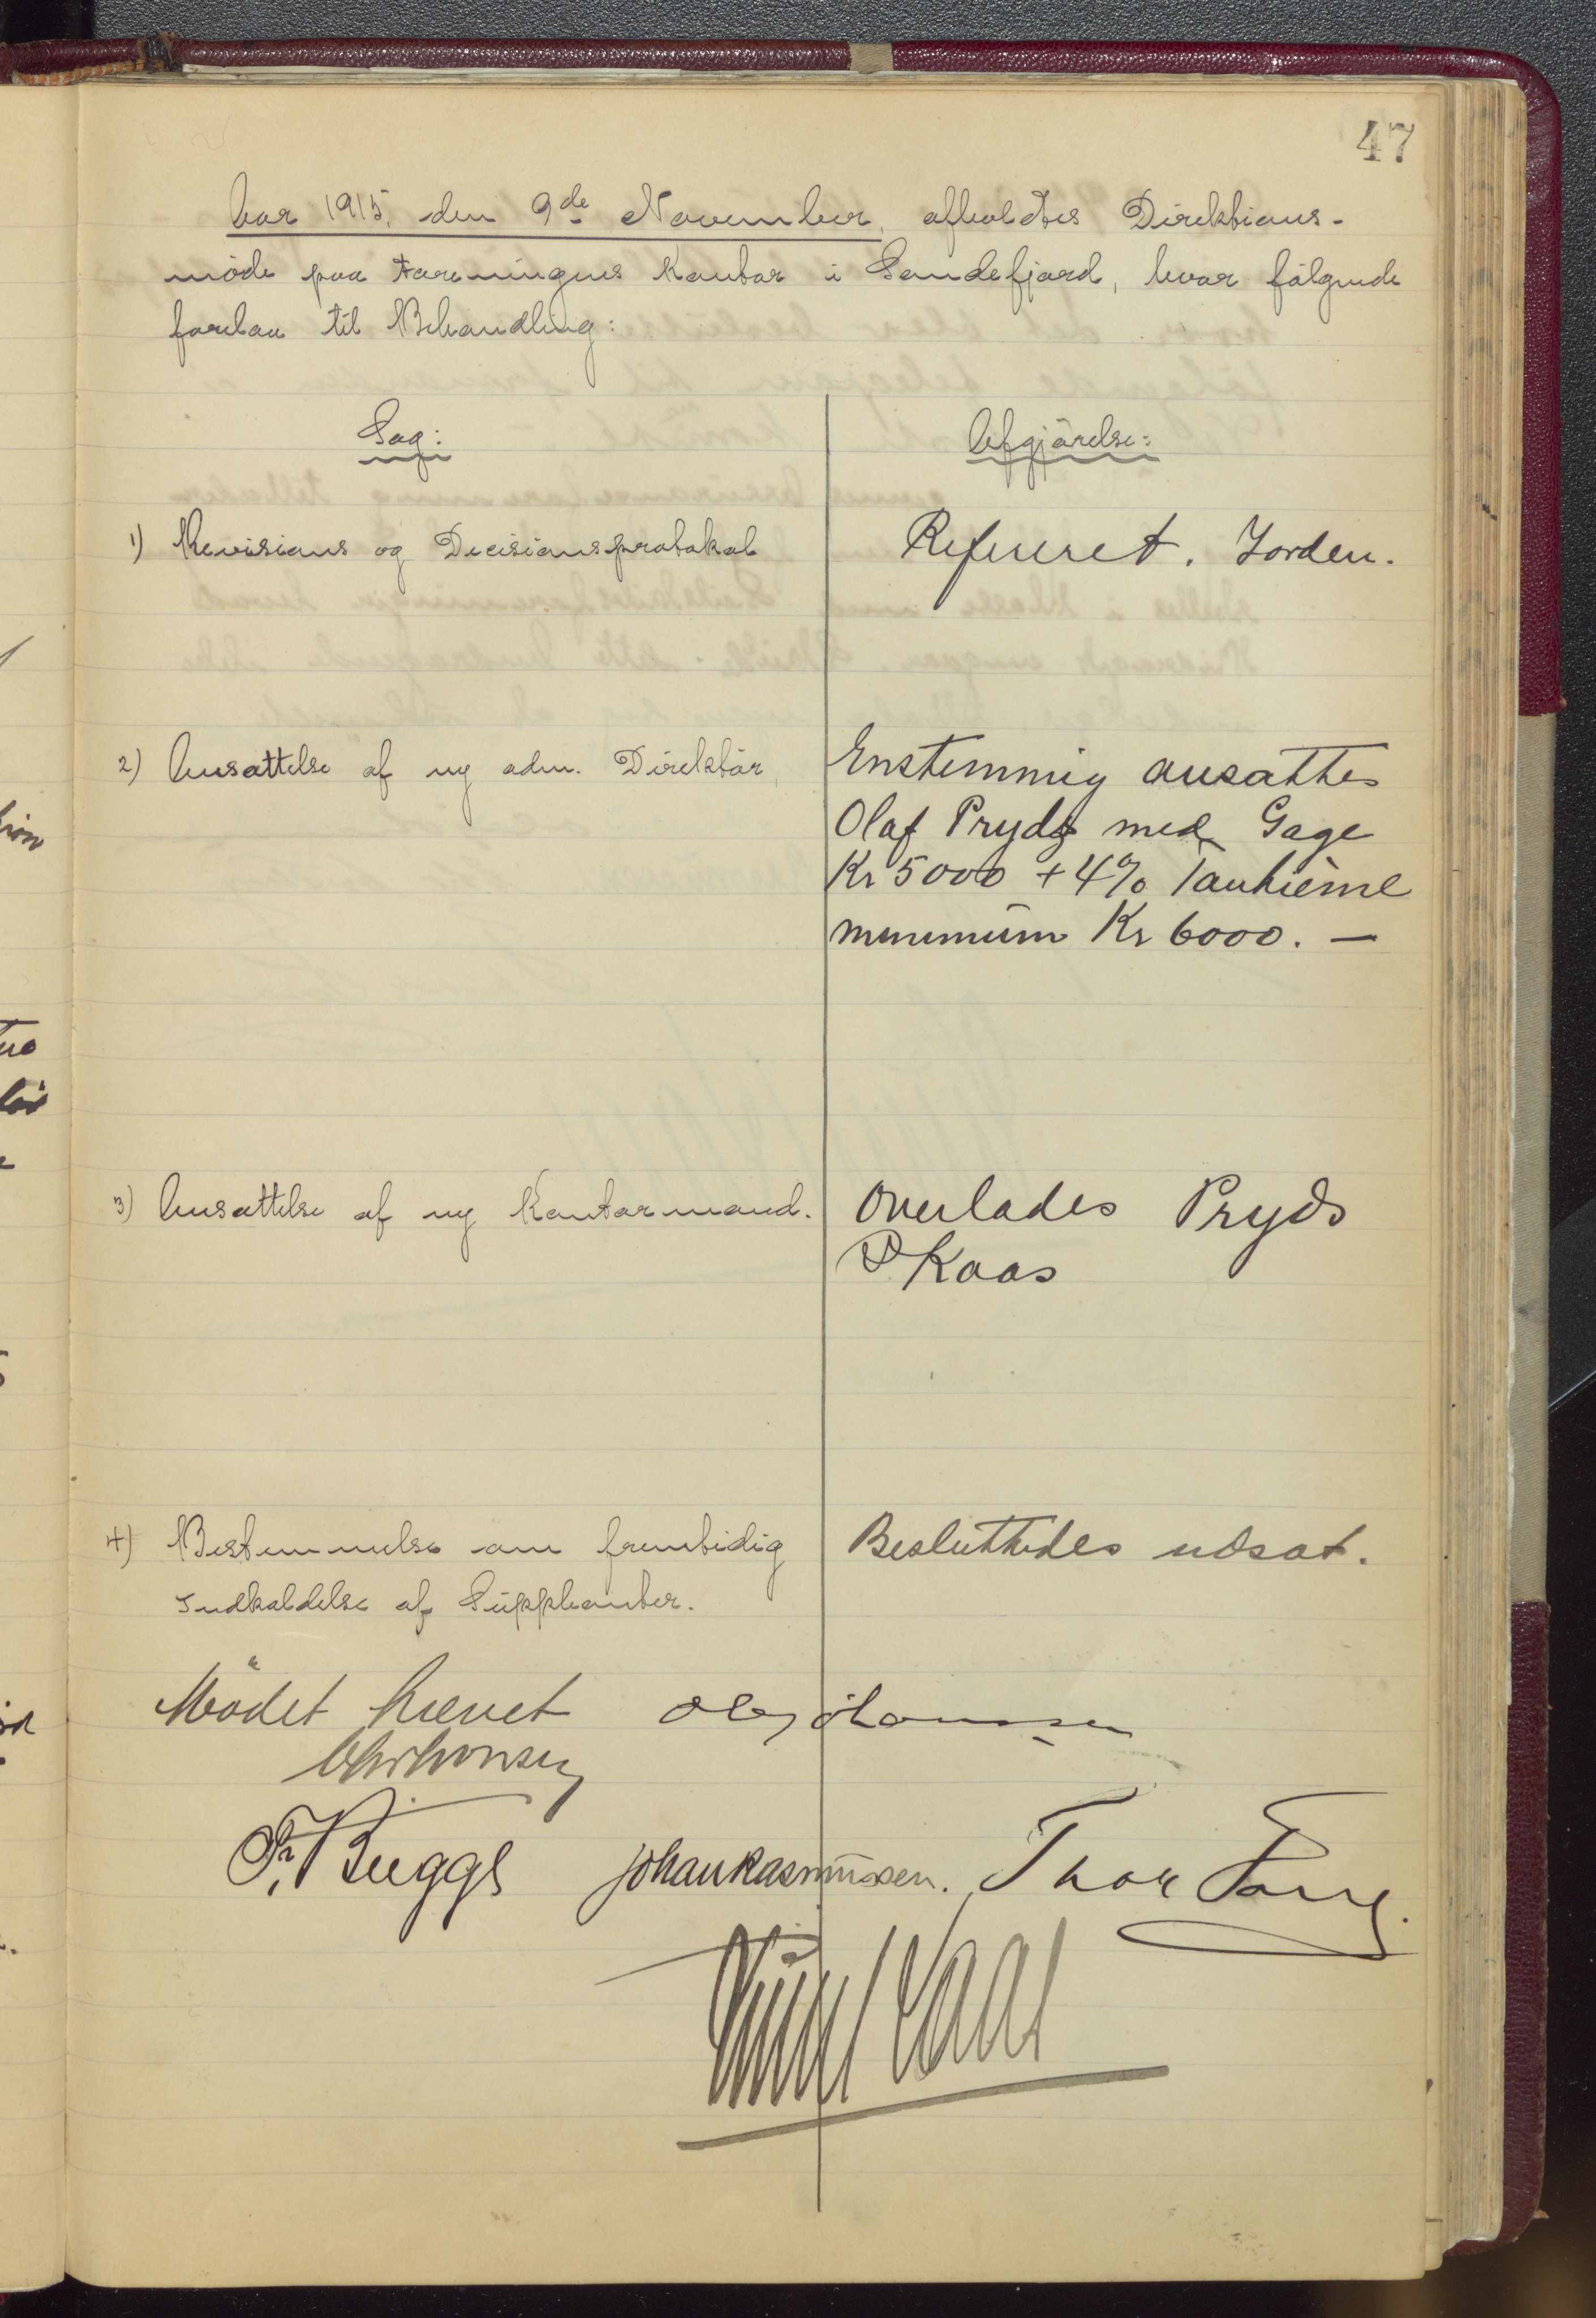 47
Aar 1915, den 9de November, afholdtes Direktions-
møde paa Foreningens Kontor i Sandefjord, hvor følgende
forelaa til Behandling:
Sag:
Afgjørelse:
1) Revisions og Decisionsprotokol
Refereret. Iorden.
2) Ansættelse af ny adm. Direktør,
Enstemmig ansattes
Olaf Pryds med Gage
Kr 5000 + 4% Tantième
minimum Kr 6000. —
3) Ansættelse af ny Kontormand.
Overlades Pryds
& Kaas
4) Bestemmelse om fremtidig
Indkaldelse af Supplianter.
Besluttedes udsat.
Mødet hævet
Fr. Bugge Johan Rasmussen. Thor
Kaas